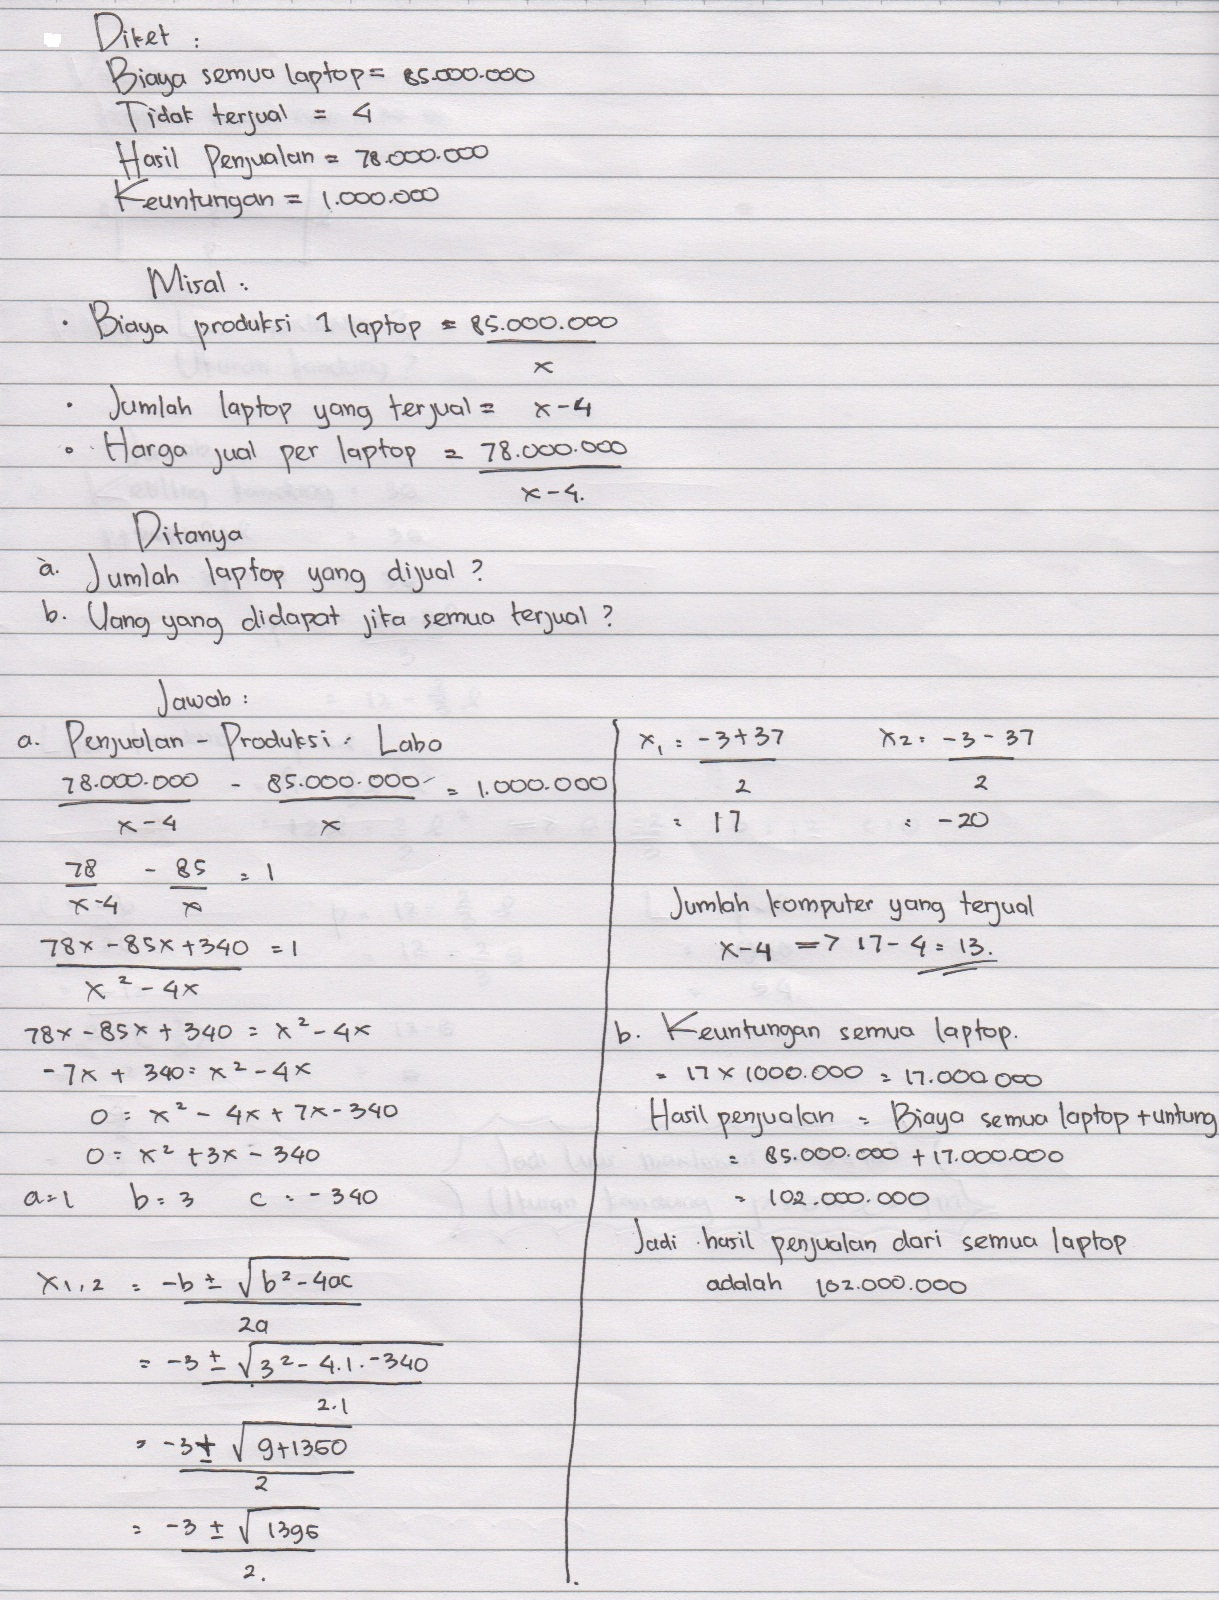 Diket :
Biaya semua laptop = 85.000.000
Tidak terjual = 4
Hasil Penjualan = 78.000.000
Keuntungan = 1.000.000
Misal :
• Biaya produksi 1 laptop = 85.000.000
x
• Jumlah laptop yang terjual = x-4
• Harga jual per laptop = 78.000.000
x-4.
Ditanya
a. Jumlah laptop yang dijual ?
b. Uang yang didapat jika semua terjual ?
Jawab :
a. Penjualan - Produksi : Laba
78.000.000 - 85.000.000 = 1.000.000
x-4 x
78 - 85 = 1
x-4 x
78x - 85x + 340 = 1
x² - 4x
78x - 85x + 340 = x² - 4x
-7x + 340 = x² - 4x
0 = x² - 4x + 7x - 340
0 = x² + 3x - 340
a=1 b=3 c = -340
x1,2 = -b ± √b² - 4ac
2a
= -3 ± √3² - 4.1.-340
2.1
= -3 ± √9+1360
2
= -3 ± √1396
2.
x₁ = -3+37 x2 = -3-37
2 2
= 17 = -20
Jumlah komputer yang terjual
x-4 => 17-4 = 13.
b. Keuntungan semua laptop.
= 17 x 1000.000 = 17.000.000
Hasil penjualan = Biaya semua laptop + untung
= 85.000.000 + 17.000.000
= 102.000.000
Jadi hasil penjualan dari semua laptop
adalah 102.000.000